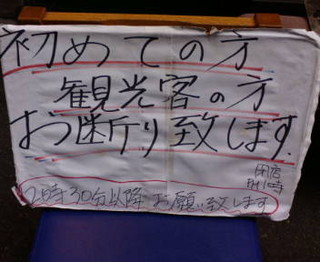 初めての方
観光客の方
お断り致します
閉店
PM10時
21時30分以降 お願い致します